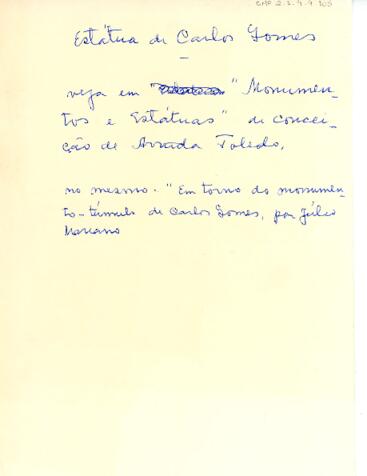 CMP 2.2.4.9 105
Estátua de Carlos Gomes
—
veja em " Monumen-
tos e Estátuas" de Concei-
ção de Arruda Toledo,
no mesmo. "Em torno do monumen-
to-túmulo de Carlos Gomes, por Júlio
Mariano